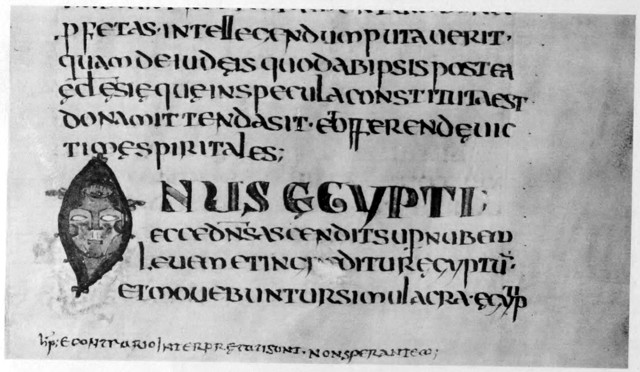 pfetas · intellegendum putauerit ·
quam de iudęis quod ab ipsis post ea
ęclesię que in specula constituta est
dona mittenda sit · & offerendę uic
timę spiritales;
ONUS ĘGYPTI
ecce dns ascendit sup nubem
leuem et ditur ęgyptū ·
et mouebuntur simulacra · ęgyp
e contrario interpretati sunt · non sperantem;